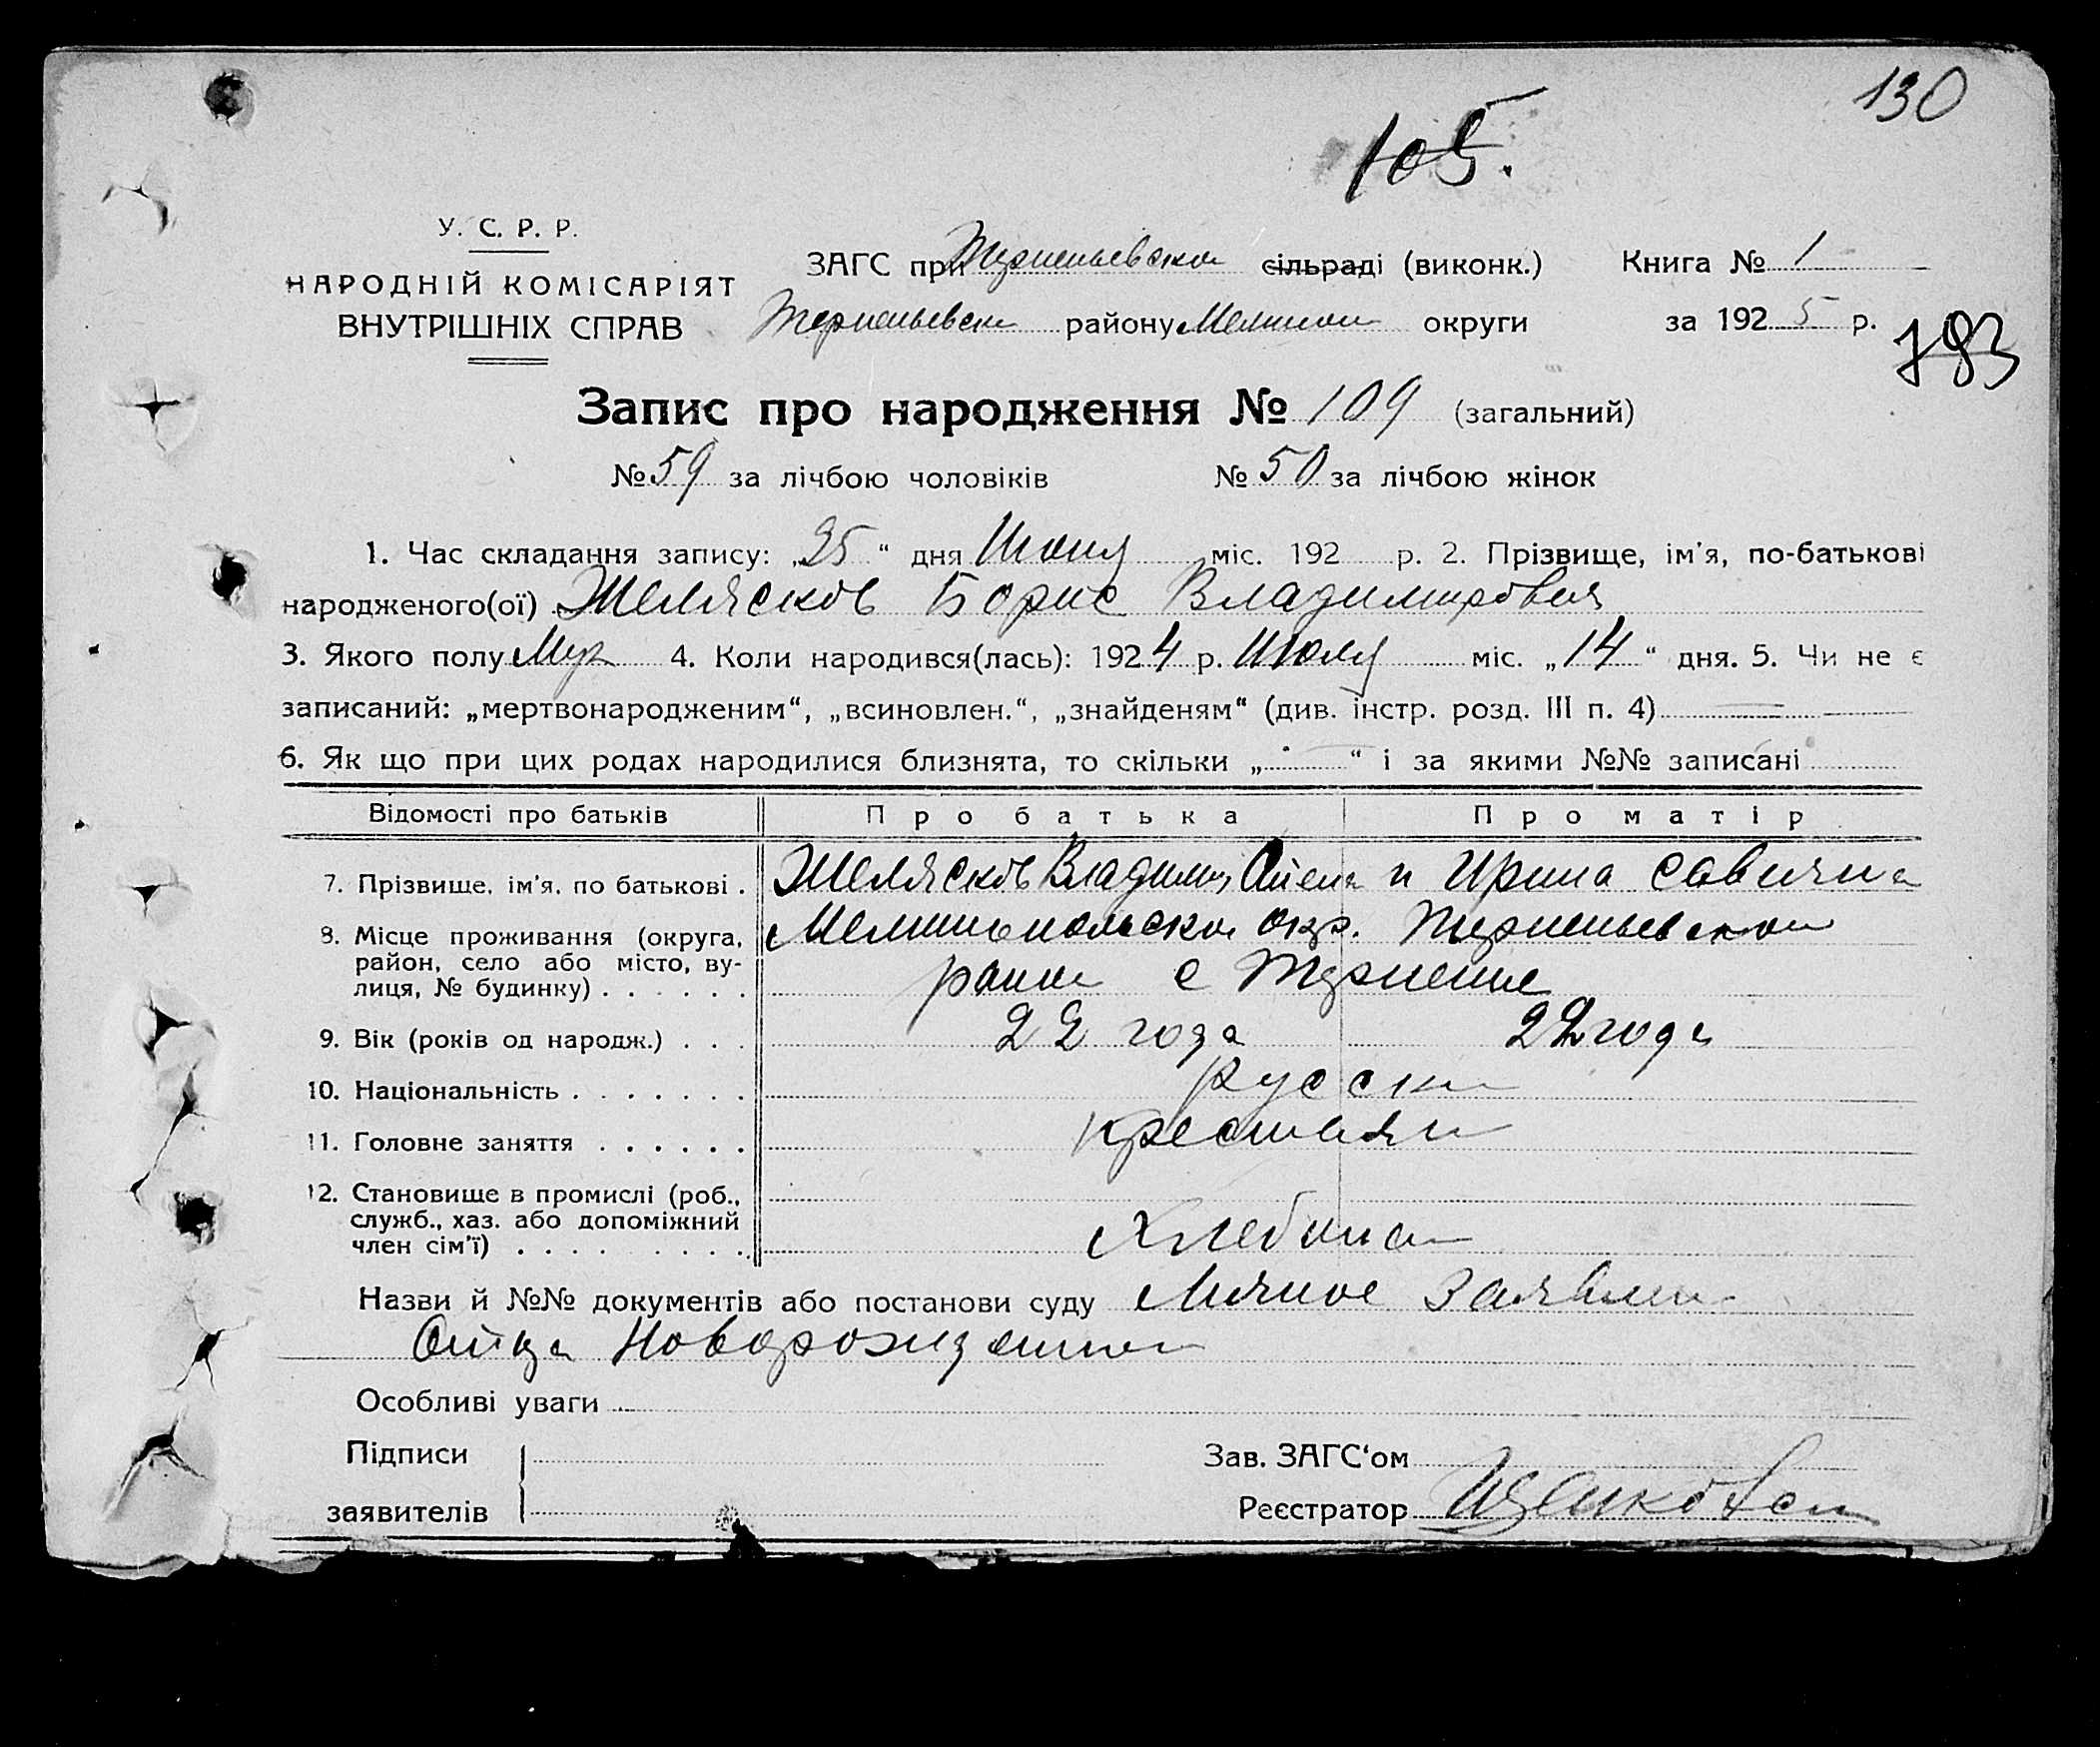 130
105.
У. С. Р. Р.
НАРОДНІЙ КОМІСАРІЯТ
ВНУТРІШНІХ СПРАВ
ЗАГС при Терпеньевском сільраді (виконк.) Книга № 1
Терпеньевск району Мелитоп округи за 1925 р.
793
Запис про народження № 109 (загальний)
№ 59 за лічбою чоловіків № 50 за лічбою жінок
1. Час складання запису: „25“ дня міс. 192 р. 2. Прізвище, ім'я, по-батькові
народженого(ої) Желясков Борис Владимирович
3. Якого полу Муж 4. Коли народився(лась): 1924 р. Июля міс. „14“ дня. 5. Чи не є
записаний: „мертвонародженим“, „всиновлен.“, „знайденям“ (див. інстр. розд. III п. 4)
6. Як що при цих родах народилися близнята, то скільки „ “ і за якими №№ записані
Відомості про батьків Про батька Про матір
7. Прізвище, ім'я, по батькові . Желясков Владимир и Ирина Савична
8. Місце проживання (округа, район, село або місто, ву-
лиця, № будинку) . . . . . . Мелитопольской окр. Терпеньевской
район с Терпение
9. Вік (років од народж.) . . . 22 года 22 года
10. Національність . . . . . . . русск
11. Головне заняття . . . . . . крестьян
12. Становище в промислі (роб.,
служб., хаз. або допоміжний
член сім'ї) . . . . . . . . Хлебопа
Назви й №№ документів або постанови суду Личное заявлен
Отца Новорожденного
Особливі уваги
Підписи
заявителів
Зав. ЗАГС'ом
Реєстратор